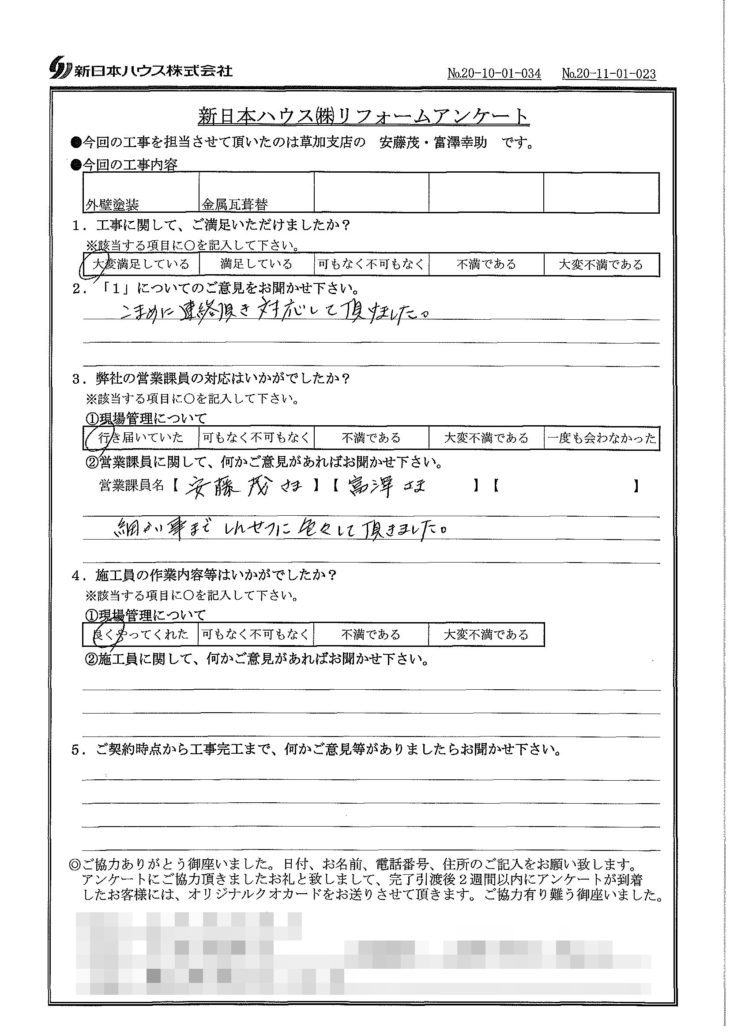 新日本ハウス株式会社
№20-10-01-034 №20-11-01-023
新日本ハウス㈱リフォームアンケート
●今回の工事を担当させて頂いたのは草加支店の 安藤茂・富澤幸助 です。
●今回の工事内容
外壁塗装 金属瓦葺替
1．工事に関して、ご満足いただけましたか？
※該当する項目に○を記入して下さい。
大変満足している 満足している 可もなく不可もなく 不満である 大変不満である
2．「1」についてのご意見をお聞かせ下さい。
こまめに連絡頂き対応して頂きました。
3．弊社の営業課員の対応はいかがでしたか？
※該当する項目に○を記入して下さい。
①現場管理について
行き届いていた 可もなく不可もなく 不満である 大変不満である 一度も会わなかった
②営業課員に関して、何かご意見があればお聞かせ下さい。
営業課員名【 安藤茂さま 】【 富澤さま 】【 】
細かい事までしんせつに色々して頂きました。
4．施工員の作業内容等はいかがでしたか？
※該当する項目に○を記入して下さい。
①現場管理について
良くやってくれた 可もなく不可もなく 不満である 大変不満である
②施工員に関して、何かご意見があればお聞かせ下さい。
5．ご契約時点から工事完工まで、何かご意見等がありましたらお聞かせ下さい。
◎ご協力ありがとう御座いました。日付、お名前、電話番号、住所のご記入をお願い致します。
アンケートにご協力頂きましたお礼と致しまして、完了引渡後２週間以内にアンケートが到着
したお客様には、オリジナルクオカードをお送りさせて頂きます。ご協力有り難う御座いました。